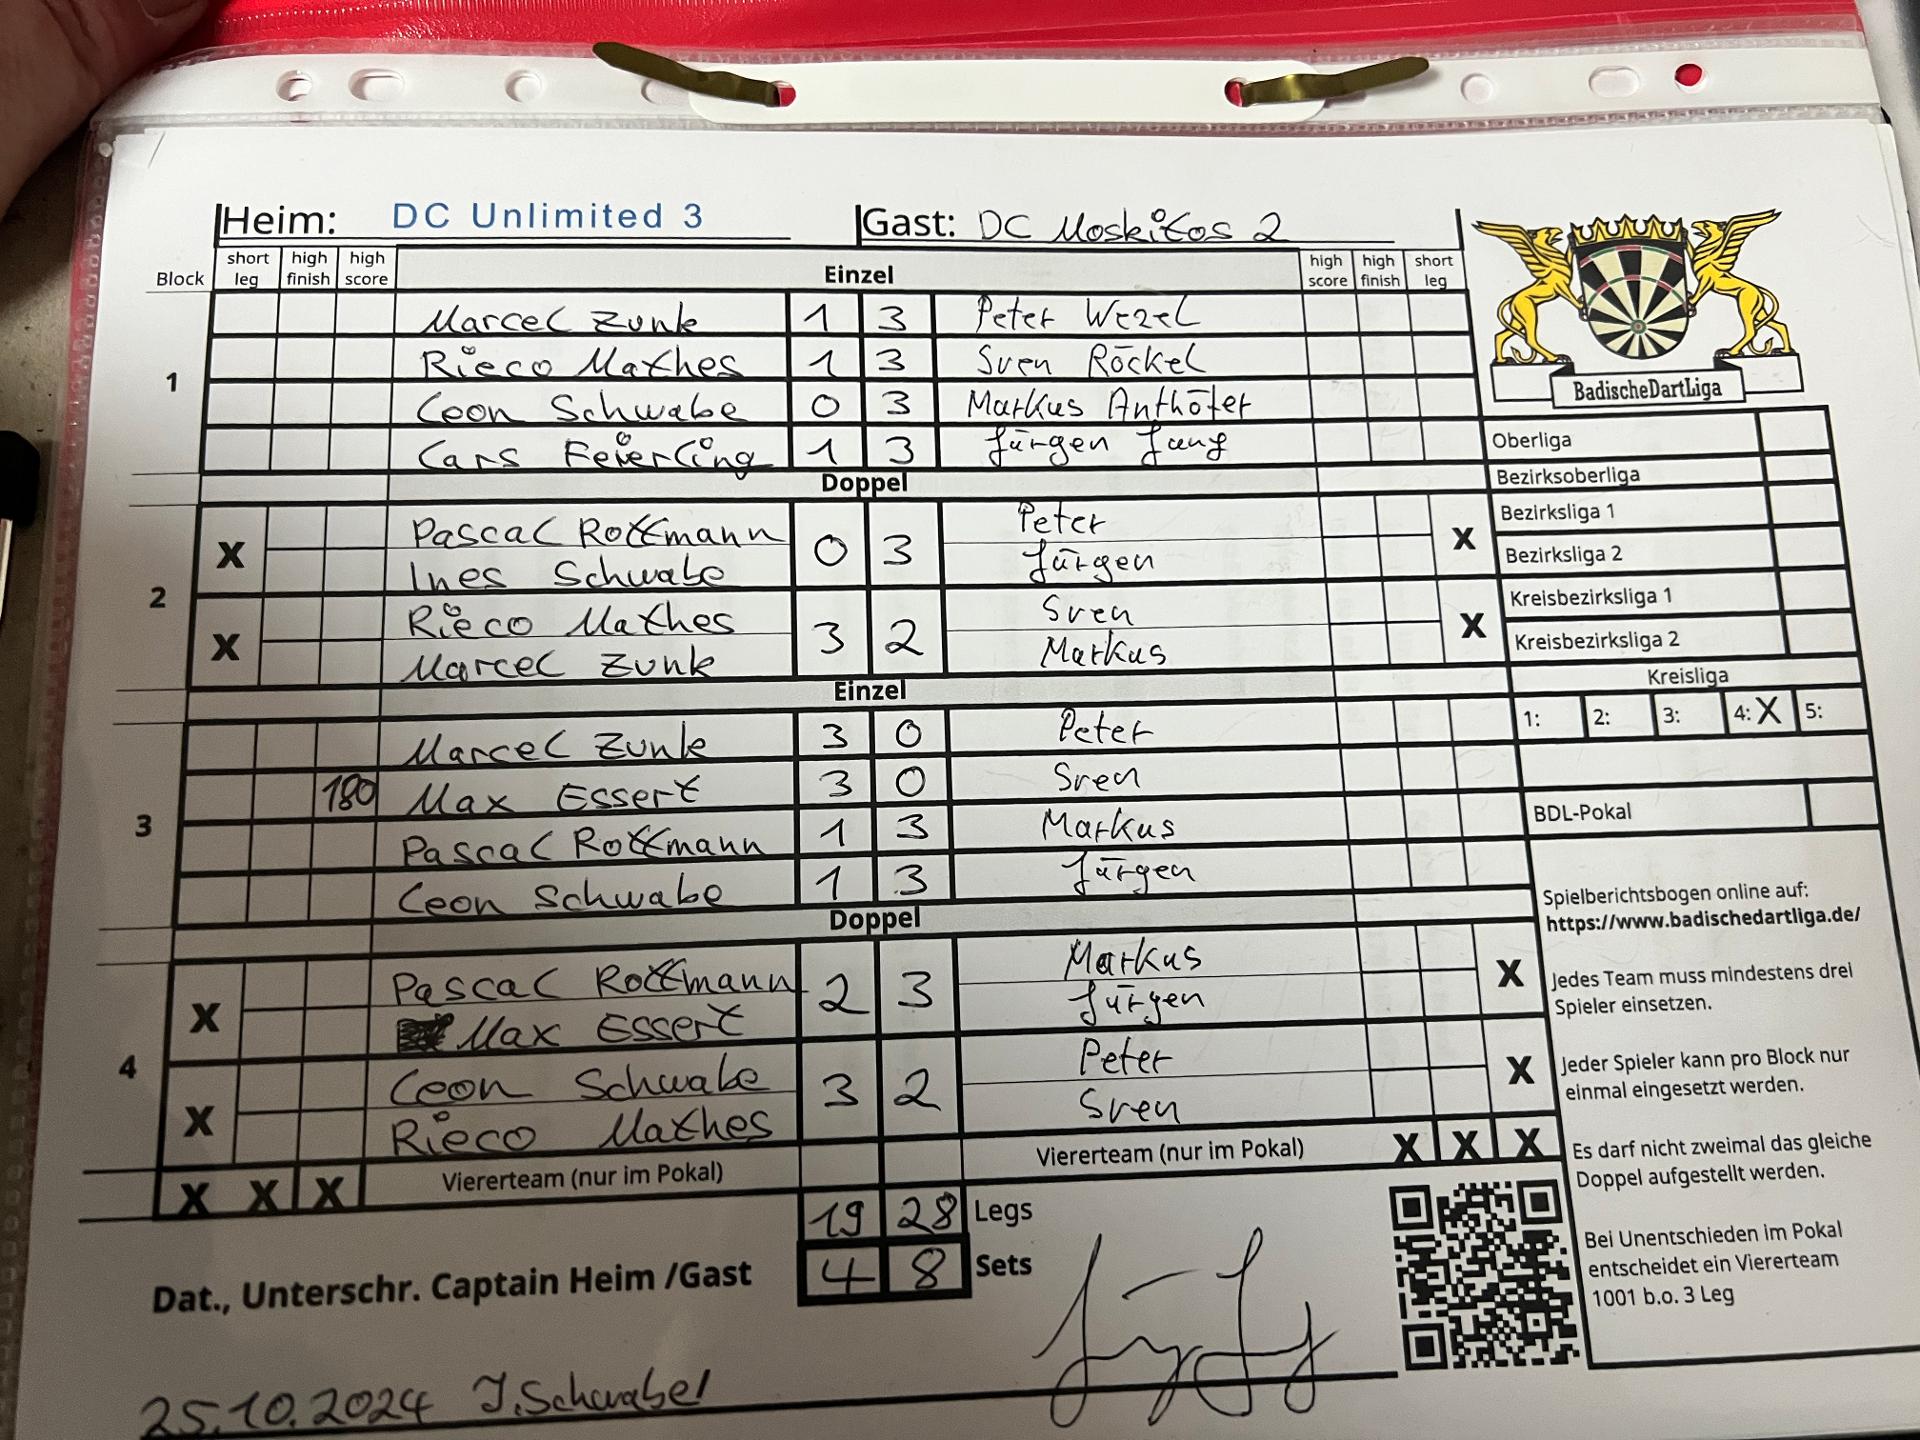 Heim: DC Unlimited 3 Gast: DC Moskitos 2
Block short leg high finish high score Einzel high score high finish short leg
1
Marcel Zunk 1 3 Peter Wezel
Rieco Mathes 1 3 Sven Röckel
Leon Schwabe 0 3 Markus Anthöfer
Lars Feierling 1 3 Jürgen Jung
Doppel
2
X Pascal Rottmann 0 3 Peter X
Ines Schwabe Jürgen
X Rieco Mathes 3 2 Sven X
Marcel Zunk Markus
Einzel
3
Marcel Zunk 3 0 Peter
180 Max Essert 3 0 Sven
Pascal Rottmann 1 3 Markus
Leon Schwabe 1 3 Jürgen
Doppel
4
X Pascal Rottmann 2 3 Markus X
Max Essert Jürgen
X Leon Schwabe 3 2 Peter X
Rieco Mathes Sven
X X X Viererteam (nur im Pokal) Viererteam (nur im Pokal) X X X
19 28 Legs
4 8 Sets
Dat., Unterschr. Captain Heim /Gast
25.10.2024 I.Schwabe
BadischeDartLiga
Oberliga
Bezirksoberliga
Bezirksliga 1
Bezirksliga 2
Kreisbezirksliga 1
Kreisbezirksliga 2
Kreisliga
1: 2: 3: 4: X 5:
BDL-Pokal
Spielberichtsbogen online auf:
https://www.badischedartliga.de/
Jedes Team muss mindestens drei
Spieler einsetzen.
Jeder Spieler kann pro Block nur
einmal eingesetzt werden.
Es darf nicht zweimal das gleiche
Doppel aufgestellt werden.
Bei Unentschieden im Pokal
entscheidet ein Viererteam
1001 b.o. 3 Leg